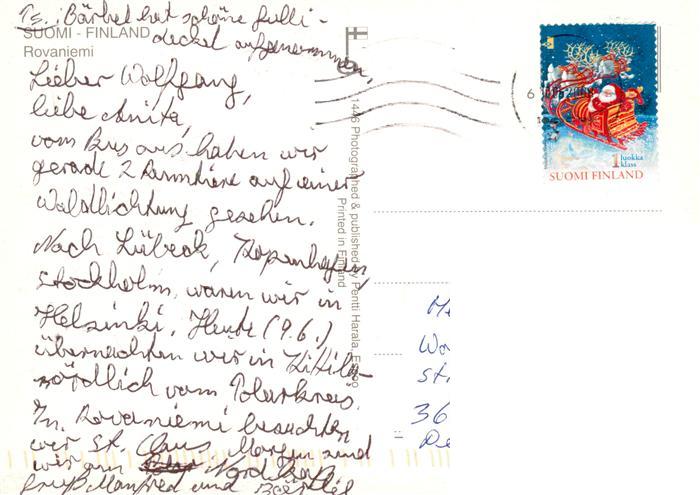 Ps.: Bärbel hat schöne Gulli-
deckel aufgenommen,
SUOMI - FINLAND
Rovaniemi
Lieber Wolfgang,
liebe Anita,
vom Bus aus haben wir
gerade 2 Rentiere auf einer
Waldlichtung gesehen.
Nach Lübeck, Kopenhagen,
Stockholm, waren wir in
Helsinki. Heute (9.6.)
übernachten wir in Kittilä
nördlich vom Polarkreis.
In Rovaniemi besuchten
wir St. Claus. Morgen sind
wir am Nordkap
Gruß Manfred und Bärbel
1446 Photographed & published by Pentti Harala, Espoo
Printed in Finland
1 luokka
klass
SUOMI FINLAND
36